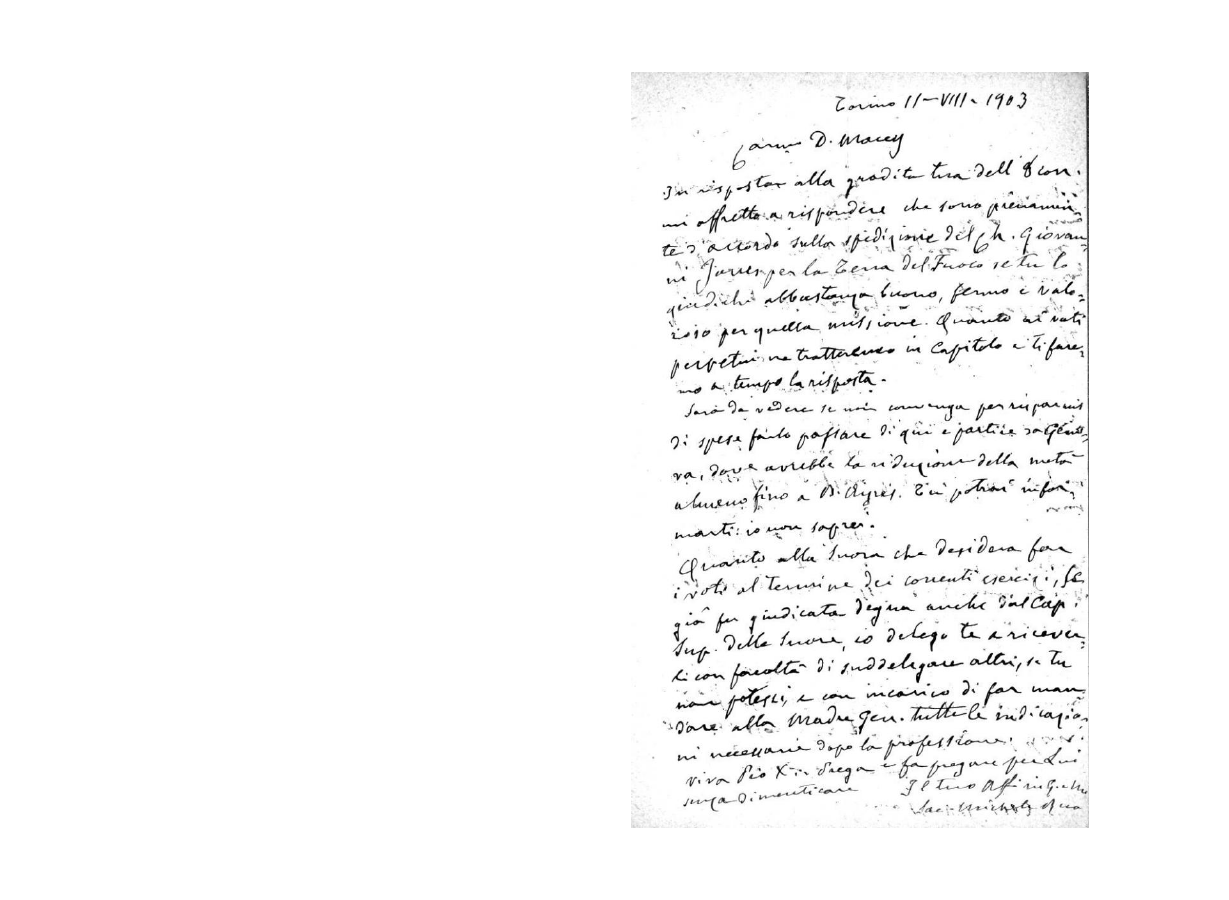 Torino 11-VIII-1903
Carmo D. Macey
In risposta alla gradita tua dell' 8 corr.
mi affretto a rispondere che sono pienamen
te d'accordo sulla spedizione del Ch. Giovan=
ni per la Terra del Fuoco se tu lo
giudichi abbastanza buono, fermo e valo=
roso per quella missione. Quanto ai voti
perpetui ne tratteremo in Capitolo e ti fare=
mo a tempo la risposta.
Sarà da vedere se non convenga per risparmio
di spese farlo passare di qui e partire da Geno=
va, dove avrebbe la riduzione della metà
almeno fino a B. Ayres. Tu potrai infor=
marti: io non saprei.
Quanto alla Suora che desidera fare
i voti al termine dei correnti esercizi, se
già fu giudicata degna anche dal Cap.
Sup. delle Suore, io delego te a ricever=
li con facoltà di suddelegare altri, se tu
non potessi, e con incarico di far man
dare alla Madre Gen. tutte le indicazio
ni necessarie dopo la professione.
Viva Pio X: Prega e fa pregare per Lui
senza dimenticare Il tuo Aff. in G. e M.
Sac. Michele Rua